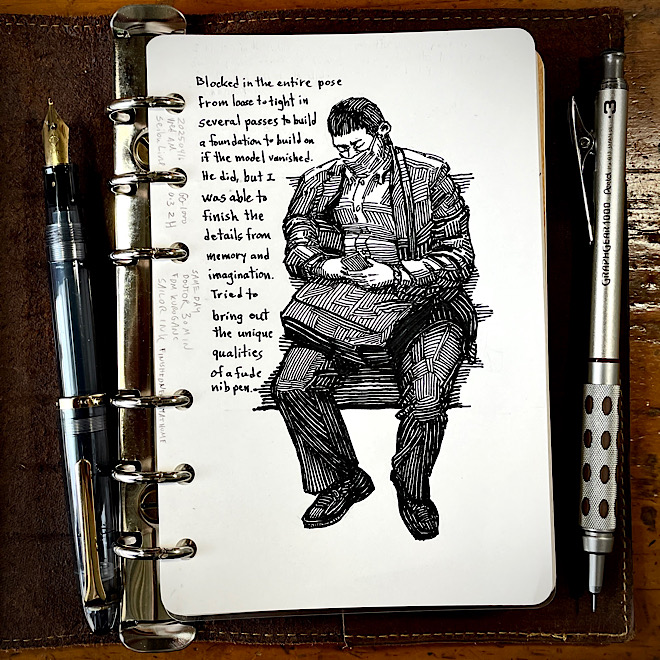 Blocked in the entire pose
from loose to tight in
several passes to build
a foundation to build on
if the model vanished.
He did, but I
was able to
finish the
details from
memory and
imagination.
Tried to
bring out
the unique
qualities
of a fude
nib pen.
SAME DAY
DOUTOR 30 MIN
TOM KUROGANE
SAILOR INK FINISHED AT HOME
GG 1000
0.3 2H
.3
GRAPHGEAR 1000 Pentel